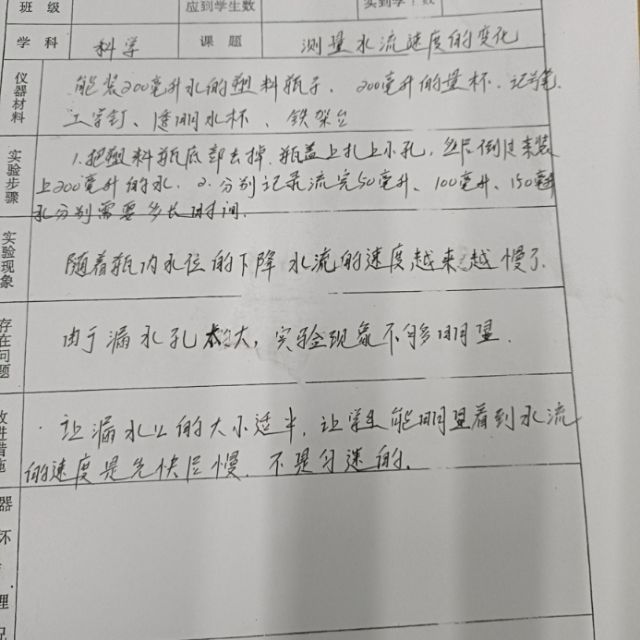 班 级 应到学生数 实到学生数
学 科 科学 课 题 测量水流速度的变化
仪器材料 能装200毫升水的塑料瓶子、200毫升的量杯、记号笔
工字钉、透明水杯、铁架台
实验步骤 1.把塑料瓶底部去掉.瓶盖上扎上小孔,然后倒过来装
上200毫升的水. 2.分别记录流完50毫升、100毫升、150毫升
水分别需要多长时间.
实验现象 随着瓶内水位的下降水流的速度越来越慢了.
存在问题 由于漏水孔太大,实验现象不够明显.
改进措施 让漏水口的大小适中,让学生能明显看到水流
的速度是先快后慢.不是匀速的.
器
坏
理
况